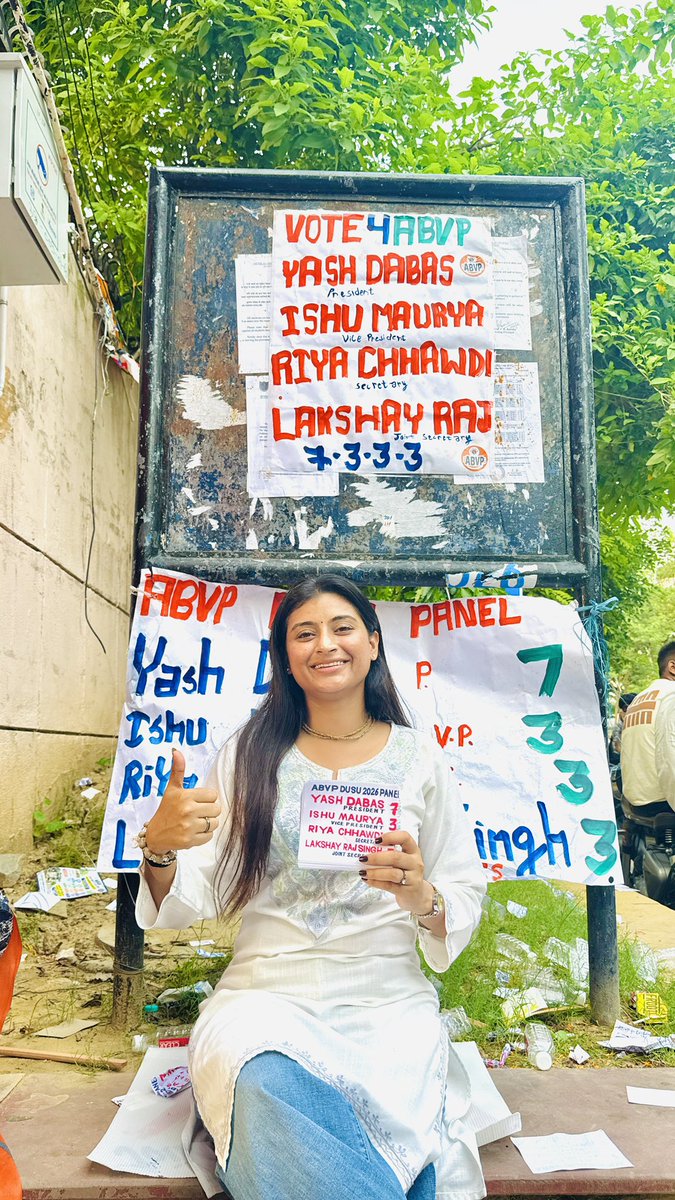 VOTE 4 ABVP
YASH DABAS
President
ABVP
ISHU MAURYA
Vice President
RIYA CHHAWDI
Secretary
LAKSHAY RAJ
Joint Secretary
7-3-3-3
ABVP
ABVP PANEL
Yash D P. 7
ISHU V.P. 3
Riy 3
L ingh 3
ABVP DUSU 2026 PANEL
YASH DABAS 7
PRESIDENT
ISHU MAURYA 3
VICE PRESIDENT
RIYA CHHAWDI
SECRETARY
LAKSHAY RAJ SINGH
JOINT SECRE